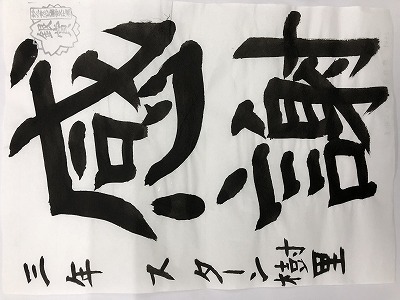 感謝
三年 スターン樹里